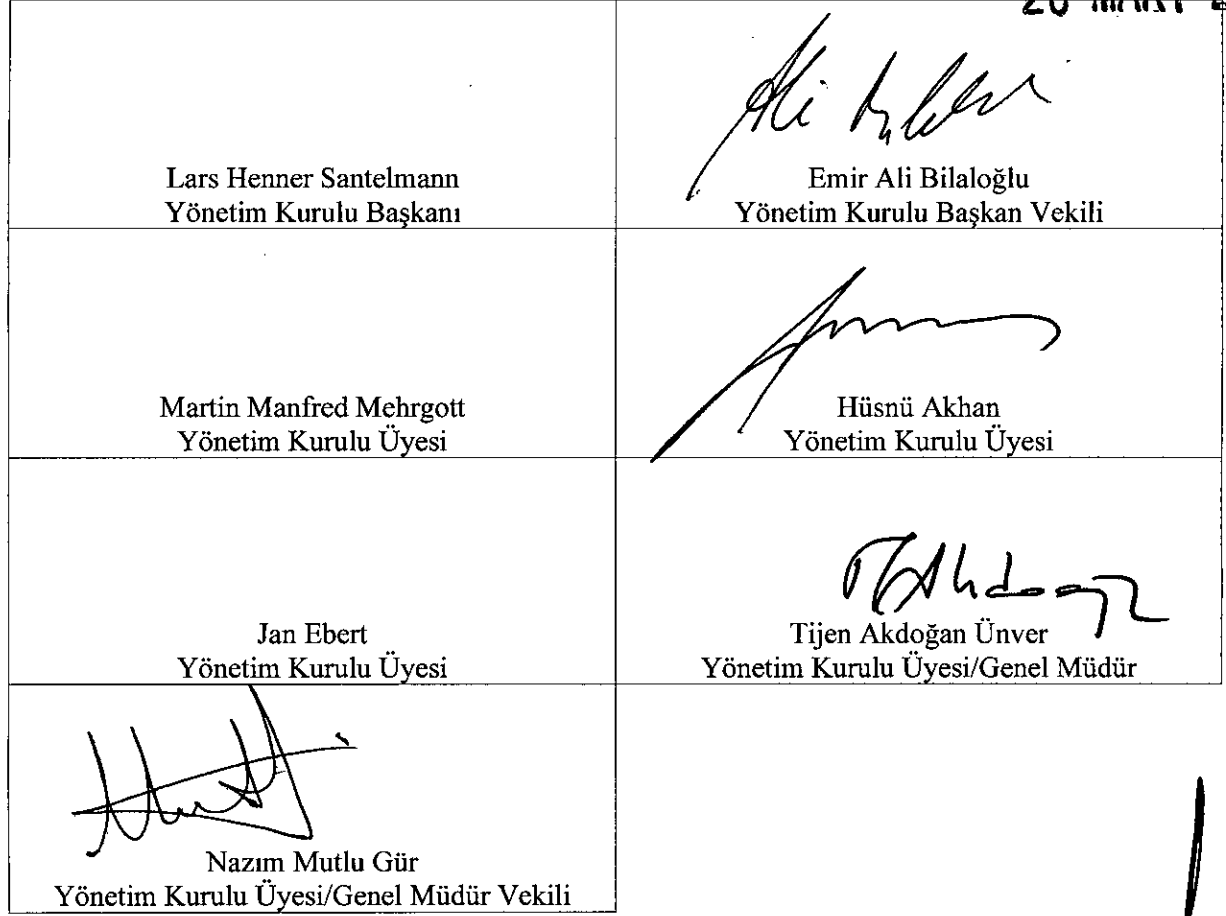 20 MART
Lars Henner Santelmann
Yönetim Kurulu Başkanı
Emir Ali Bilaloğlu
Yönetim Kurulu Başkan Vekili
Martin Manfred Mehrgott
Yönetim Kurulu Üyesi
Hüsnü Akhan
Yönetim Kurulu Üyesi
Jan Ebert
Yönetim Kurulu Üyesi
Tijen Akdoğan Ünver
Yönetim Kurulu Üyesi/Genel Müdür
Nazım Mutlu Gür
Yönetim Kurulu Üyesi/Genel Müdür Vekili